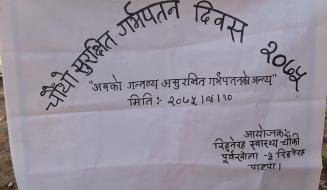 चौथो सुरक्षित गर्भपतन दिवस २०७५
"अबको गन्तव्य असुरक्षित गर्भपतनको अन्त्य"
मिति :- २०७५।०६।१०
आयोजक:
स्वास्थ्य चौकी
पूर्वखोला -३
पाल्पा।